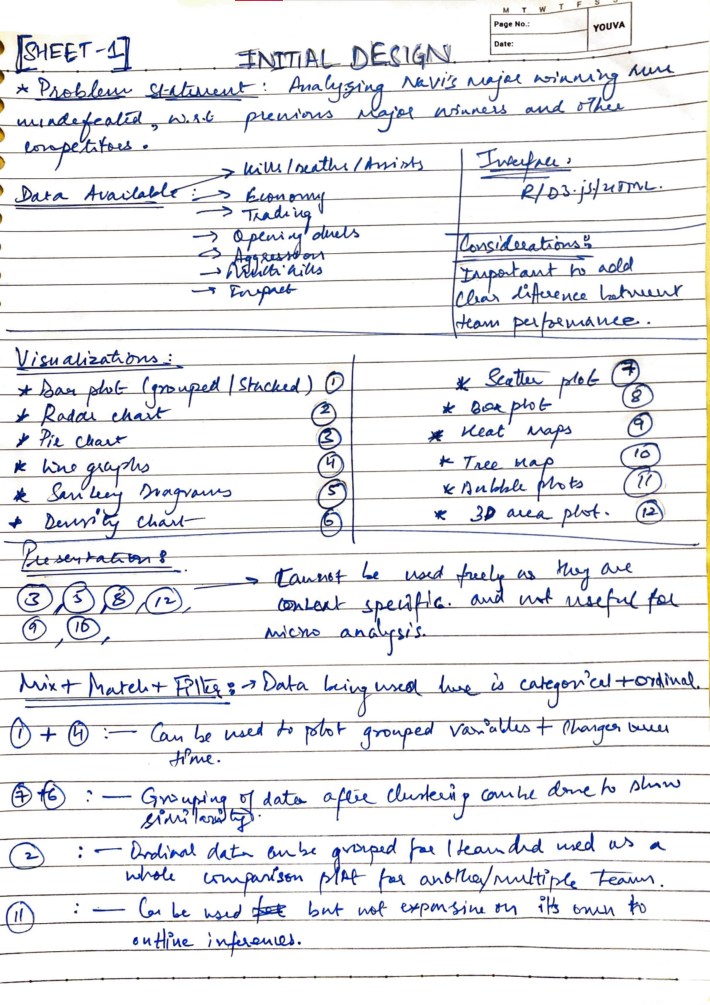 M T W T F S S
Page No.:
Date:
YOUVA
[SHEET-1]
INITIAL DESIGN
* Problem statement : Analyzing Navi's Major winning run
undefeated, w.r.t previous Major winners and other
competitors.
Data Available :
→ Kills/Deaths/Assists
→ Economy
→ Trading
→ Opening duels
→ Aggression
→ Multikills
→ Impact
Interface :
R/D3.js/HTML.
Considerations :
Important to add
clear difference between
team performance.
Visualizations :
* Bar plot (grouped/Stacked) ①
* Radar chart ②
* Pie chart ③
* Line graphs ④
* Sankey Diagrams ⑤
* Density chart ⑥
* Scatter plot ⑦
* Box plot ⑧
* Heat Maps ⑨
* Tree Map ⑩
* Bubble plots ⑪
* 3D area plot. ⑫
Presentation :
③, ⑤, ⑧, ⑫,
⑨, ⑩,
→ Cannot be used freely as they are
context specific. and not useful for
micro analysis.
Mix + Match + Filter : → Data being used here is categorical + ordinal.
① + ④ :— Can be used to plot grouped variables + Changes over
time.
⑦+⑥ :— Grouping of data after clustering can be done to show
similarity.
② :— Ordinal data can be grouped for 1 team and used as a
whole comparison plot for another/multiple teams.
⑪ :— Can be used but not expansive on its own to
outline inferences.